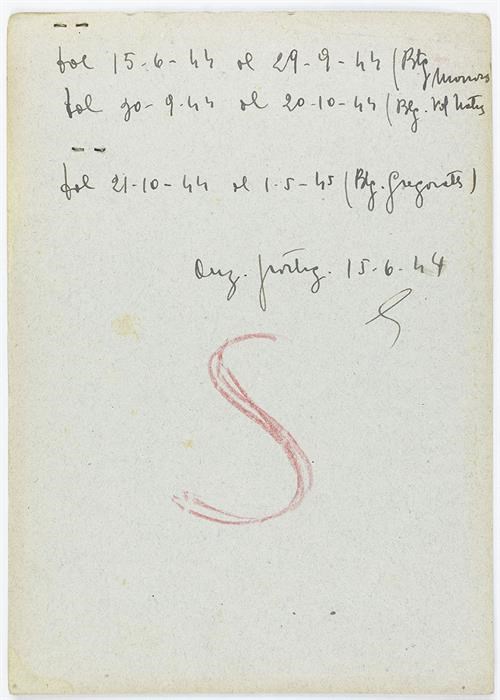 dal 15-6-44 al 29-9-44 (Btg
dal 30-9-44 al 20-10-44 (Btg. Val
dal 21-10-44 al 1-5-45 (Btg.
Anz. partig. 15-6-44
S